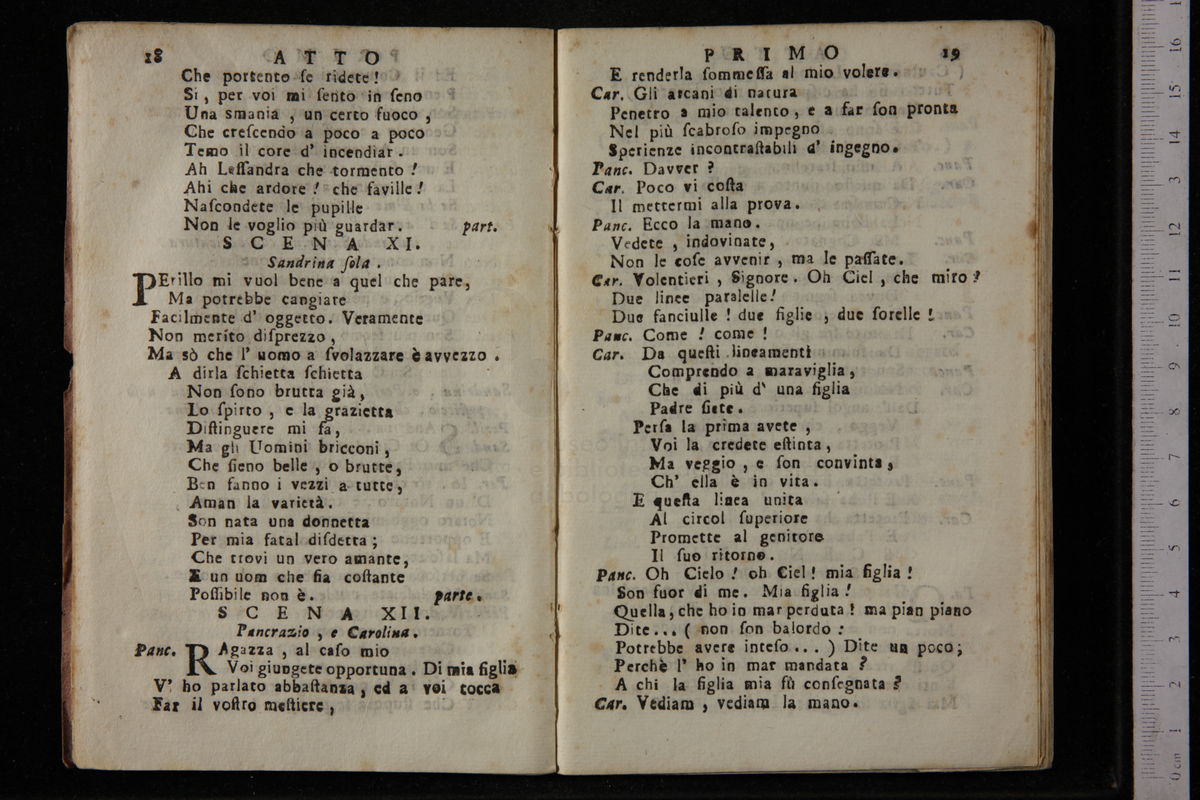 18 ATTO
Che portento se ridete!
Si, per voi mi sento in seno
Una smania, un certo fuoco,
Che crescendo a poco a poco
Temo il core d' incendiar.
Ah Lessandra che tormento!
Ahi che ardore! che faville!
Nascondete le pupille
Non le voglio più guardar. part.
SCENA XI.
Sandrina sola.
PErillo mi vuol bene a quel che pare,
Ma potrebbe cangiare
Facilmente d' oggetto. Veramente
Non merito disprezzo,
Ma sò che l' uomo a svolazzare è avvezzo.
A dirla schietta schietta
Non sono brutta già,
Lo spirto, e la grazietta
Distinguere mi fa,
Ma gli Uomini bricconi,
Che sieno belle, o brutte,
Ben fanno i vezzi a tutte,
Aman la varietà.
Son nata una donnetta
Per mia fatal disdetta;
Che trovi un vero amante,
E un uom che sia costante
Possibile non è. parte.
SCENA XII.
Pancrazio, e Carolina.
Panc. RAgazza, al caso mio
Voi giungete opportuna. Di mia figlia
V' ho parlato abbastanza, ed a voi tocca
Far il vostro mestiere,
PRIMO 19
E renderla sommessa al mio volere.
Car. Gli arcani di natura
Penetro a mio talento, e a far son pronta
Nel più scabroso impegno
Sperienze incontrastabili d' ingegno.
Panc. Davver?
Car. Poco vi costa
Il mettermi alla prova.
Panc. Ecco la mano.
Vedete, indovinate,
Non le cose avvenir, ma le passate.
Car. Volentieri, Signore. Oh Ciel, che miro?
Due linee paralelle!
Due fanciulle! due figlie, due sorelle!
Panc. Come! come!
Car. Da questi lineamenti
Comprendo a maraviglia,
Che di più d' una figlia
Padre siete.
Persa la prima avete,
Voi la credete estinta,
Ma veggio, e son convinta,
Ch' ella è in vita.
E questa linea unita
Al circol superiore
Promette al genitore
Il suo ritorno.
Panc. Oh Cielo! oh Ciel! mia figlia!
Son fuor di me. Mia figlia!
Quella, che ho in mar perduta! ma pian piano
Dite... ( non son balordo:
Potrebbe avere inteso... ) Dite un poco;
Perchè l' ho in mar mandata?
A chi la figlia mia fù consegnata?
Car. Vediam, vediam la mano.
16
15
14
13
12
11
10
9
8
7
6
5
4
3
2
1
0 cm